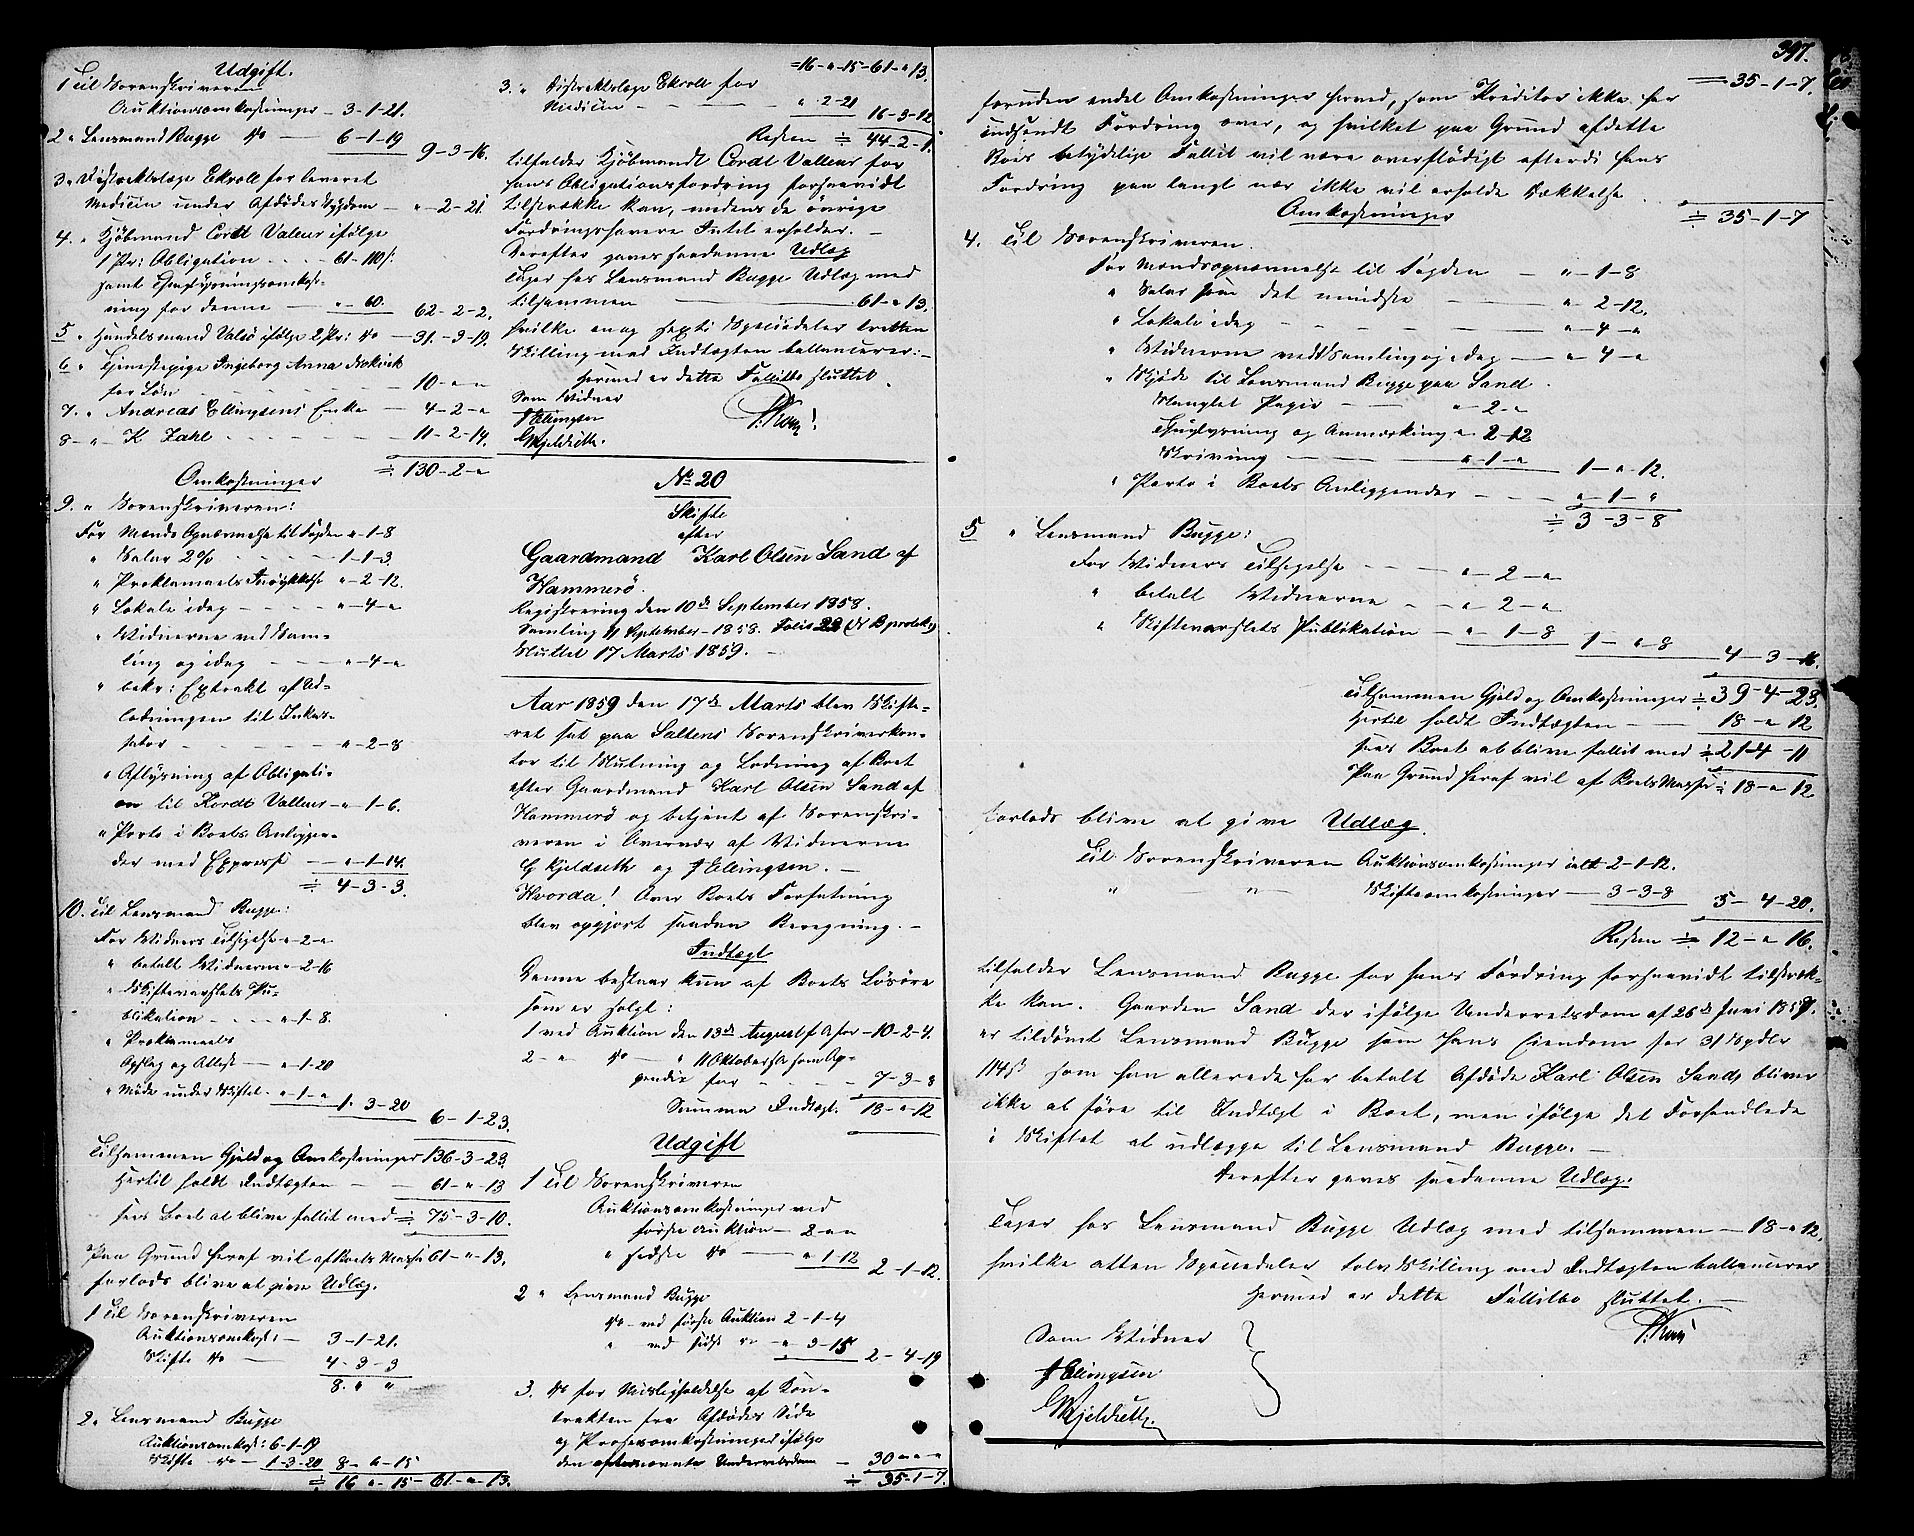 Udgift.
1 Til Sorenskriveren
Auktionsomkostninger - 3-1-21.
2 " Lensmand Bugge do — 6-1-19
9-3-16.
3 " Distriktslæge Ekroll for leveret
Medicin under Afdødes Sygdom — " - 2-21.
4. " Kjøbmand Cordt Valeur ifølge
1 Pr: Obligation - - - - 61-110ß.
samt Thinglysningsomkost-
ning for denne — " - 60. 62-2-2.
5 " Handelsmand Valsø ifølge 2 Pr: do — 31-3-19.
6 " Tjenestepige Ingeborg Anna
for Løn — 10-"-"
7. " Andreas Ellingsens Enke — 4-2-"
8 - " - K Zahl - - - - - 11-2-14.
÷ 130-2-"
Omkostninger
9. " Sorenskriveren:
For Mænds Opnævnelse til Fogden "-1-8
" Salar 2% - - - - 1-1-3.
" Proklamaets Indrykkelse "-2-12.
" Lokale idag - - - - - "-4-"
" Vidnerne ved Sam-
ling og idag - - - - "-4-"
" bekr: Extrakt af Ud-
lodningen til Inkas-
sator - - - - - "-2-8
" Aflysning af Obligati-
on til Kordt Valleur - "-1-6.
" Porto i Boets Anliggen-
der med Express — "-1-14.
÷ 4-3-3.
10. Til Lensmand Bugge:
For Vidners Tilsigelse "-2-"
" betalt Vidnerne "-2-16
" Skiftevarslets Pu-
blikation - - - - "-1-8.
" Proklamaets
Opslag og Attest — "-1-20
" Møde under Skiftet - "-1-" 1. 3-20
6-1-23.
Tilsammen Gjeld og Omkostninger 136-3-23.
Hertil holdt Indtægten - - 61-"-13
sees Boet at blive fallit med ÷ 75-3-10.
Paa Grund heraf vil af Boets Masse 61-"-13.
forlods blive at give Udlæg.
1 Til Sorenskriveren
Auktionsomkost: — 3-1-21.
Skifte do — 4-3-3
8. " "
2. Lensmand Bugge
Auktionsomkost: 6-1-19
Skifte do — 1-3-20 8-"-15
÷ 16 "-15 - 61-"-13.
=16-"-15-61-"-13.
3. " Distriktslæge Ekroll for
Medicin — - — - — "-2-21 16-3-12
Resten ÷ 44-2-1.
tilfalder Kjøbmandt Cordt Valleur for
hans Obligationsfordring forsaavidt
tilstrække kan, medens de øvrige
Fordringshavere Intet erholder. —
Derefter gaves saadanne Udlæg
Tager hos Lensmand Bugge Udlæg med
tilsammen — 61-"-13.
hvilke en og sexti Speciedaler tretten
Skilling med Indtægten ballancerer. —
Hermed er dette Fallitbo sluttet.
Som Vidner
J Ellingsen
G Kjeldseth.
No 20
Skifte
efter
Gaardmand Karl Olsen Sand af
Hammerø.
Registrering den 10de September 1858.
Samling 11 September - 1858. Folio 28 (N B protok:)
Sluttet 17 Marts 1859. —
Aar 1859 den 17de Marts blev Skifte-
ret sat paa Saltens Sorenskriverkon-
tor til Slutning og Lodning af Boet
efter Gaardmand Karl Olsen Sand af
Hammerø og betjent af Sorenskri-
veren i Overvær af Vidnerne
G Kjeldseth og J Ellingsen. —
Hvorda! Over Boets Forfatning
blev opgjort saadan Beregning. —
Indtægt
Denne bestaar kun af Boets Løsøre
som er solgt:
1 ved Auktion den 13de August f A for - 10-2-4.
2 - " do — " 11 Oktober s A som Ap-
pendix for - - - - 7-3-8
Summa Indtægt. 18-"-12
Udgift
1 Til Sorenskriveren
Auktionsomkostninger ved
første Auktion — 2-"-"
" sidste do — " 1-12
2-1-12.
2 " Lensmand Bugge
do — ved første Auktion 2-1-4
" ved sidst do " 3-15
2-4-19
3. do for Misligholdelse af Kon-
trakten fra Afdødes Side
og Procesomkostninger ifølge
den afsernævnte Underretsdom — 30-"-"
÷ 35-1-7.
397.
= 35-1-7.
foruden endel Omkostninger herved, som Kreditor ikke har
indsendt Fordring over, og hvilket paa Grund af dette
Boes betydelige Fallit vil være overflødigt efterdi hans
Fordring paa langt nær ikke vil erholde Dækkelse.
÷ 35-1-7
Omkostninger
4. Til Sorenskriveren.
For Mændsopnævnelse til Fogden — "-1-8
" Salar som det mindste - — - — "-2-12.
" Lokale idag - - - - - - "-4-"
" Vidnerne ved Samling og idag — "-4-"
" Skjøde til Lensmand Bugge paa Sand.
Stemplet Papir - — "-2-"
Thinglysning og Anmærkning "-2-12
Skrivning - — - — "-1-" 1-"-12.
" Porto i Boets Anliggender - - - "-1-"
÷ 3-3-8
5 " Lensmand Bugge:
For Vidners Tilsigelse - - — "-2-"
" betalt Vidnerne - - "-2-"
" Skiftevarslets Publikation — "-1-8 1-"-8
4-3-16.
Tilsammen Gjeld og Omkostninger ÷ 39-4-23.
Hertil holdt Indtægten - — 18-"-12
sees Boet at blive fallit med ÷ 21-4-11
Paa Grund heraf vil af Boets Masse ÷ 18-"-12
forlods blive at give Udlæg.
Til Sorenskriveren Auktionsomkostninger ialt 2-1-12.
" — " — Skifteomkostninger — 3-3-8 5-4-20.
Resten ÷ 12-"-16.
tilfalder Lensmand Bugge for hans Fordring forsaavidt tilstræk-
ke kan. Gaarden Sand der ifølge Underretsdom af 26de Juni 1857.
er tildømt Lensmand Bugge som hans Eiendom for 31 Spdlr
114ß som han allerede har betalt Afdøde Karl Olsen Sand, bliver
ikke at føre til Indtægt i Boet, men ifølge det Forhandlede
i Skiftet at udlægge til Lensmand Bugge. —
Derefter gaves saadanne Udlæg.
Tager hos Lensmand Bugge Udlæg med tilsammen — 18-"-12.
hvilke atten Speciedaler tolv Skilling med Indtægten ballancerer
Hermed er dette Fallitbo sluttet. —
Som Vidner
J Ellingsen
G Kjeldseth.